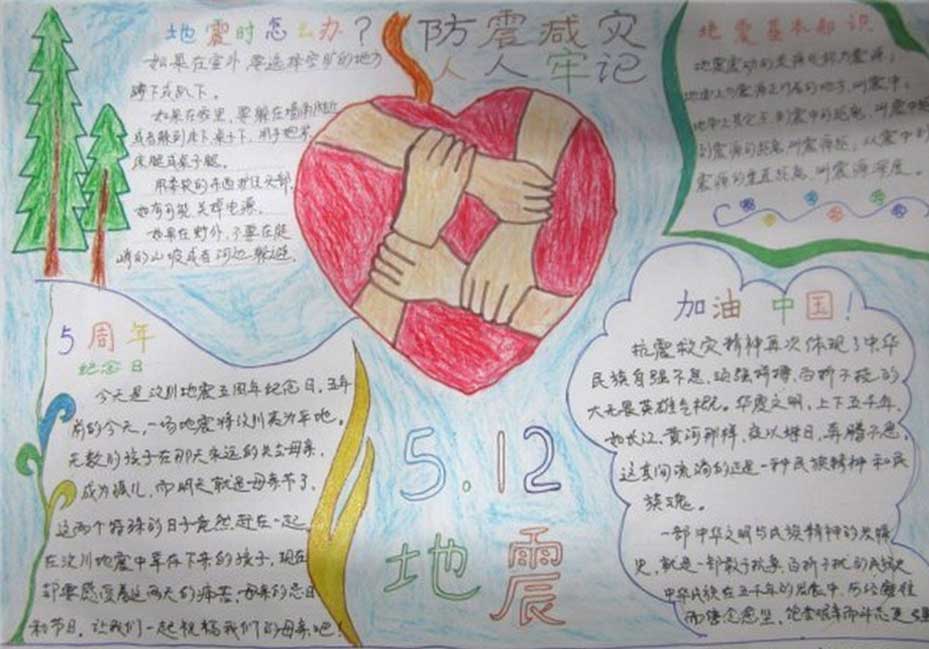 地震时怎么办？
如果在室外，要选择空旷的地方
蹲下或趴下。
如果在家里，要躲在墙角附近
或者躲到床下、桌子下，用手抱紧
床腿或桌子腿。
用柔软的东西护住头部，
如有可能，关掉电源。
如果在野外，不要在陡
峭的山坡或者河边躲避。
防震减灾
人人牢记
地震基本知识
地震震动的发源处称为震源；
地面上与震源正对着的地方，叫震中；
到震源的距离，叫震源距；从震中到
震源的垂直距离，叫震源深度。
5周年
纪念日
今天是汶川地震五周年纪念日，五年
前的今天，一场地震将汶川夷为平地。
无数的孩子在那天永远的失去母亲，
成为孤儿，而明天就是母亲节了，
这两个特殊的日子竟然赶在一起。
在汶川地震中幸存下来的孩子，现在
却要感受着这两天的痛苦，母亲的忌日
和节日，让我们一起祝福我们的母亲吧！
5.12
地震
加油中国！
抗震救灾精神再次体现了中华
民族自强不息、顽强拼搏、百折不挠的
大无畏英雄气概。华夏文明，上下五千年，
如长江、黄河那样，夜以继日，奔腾不息，
这其间流淌的正是一种民族精神和民
族魂。
一部中华文明与民族精神的发展
史，就是一部散子抗争、百折不挠的民族史
中华民族在五千年的发展中，历经磨难
而信念愈坚，饱尝艰辛而斗志更